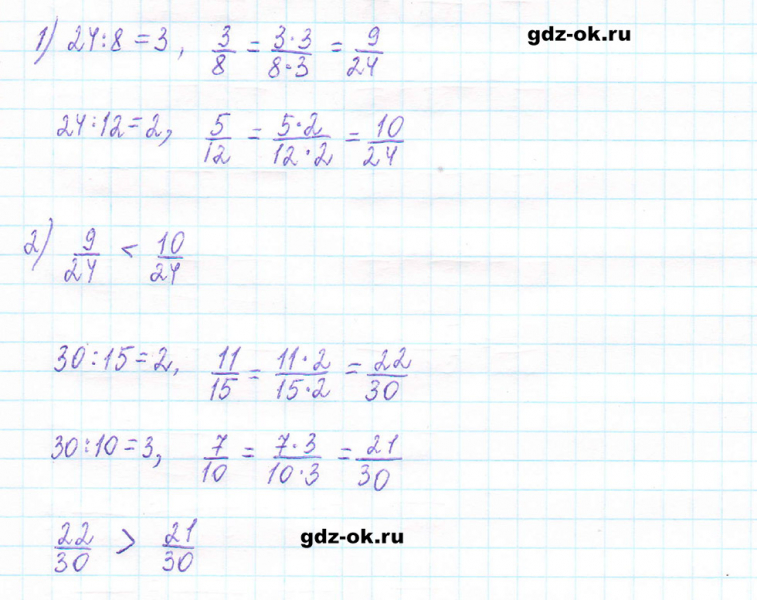 gdz-ok.ru
1) 24:8=3, 3/8 = 3·3/8·3 = 9/24
24:12=2, 5/12 = 5·2/12·2 = 10/24
2) 9/24 < 10/24
30:15=2, 11/15 = 11·2/15·2 = 22/30
30:10=3, 7/10 = 7·3/10·3 = 21/30
22/30 > 21/30
gdz-ok.ru